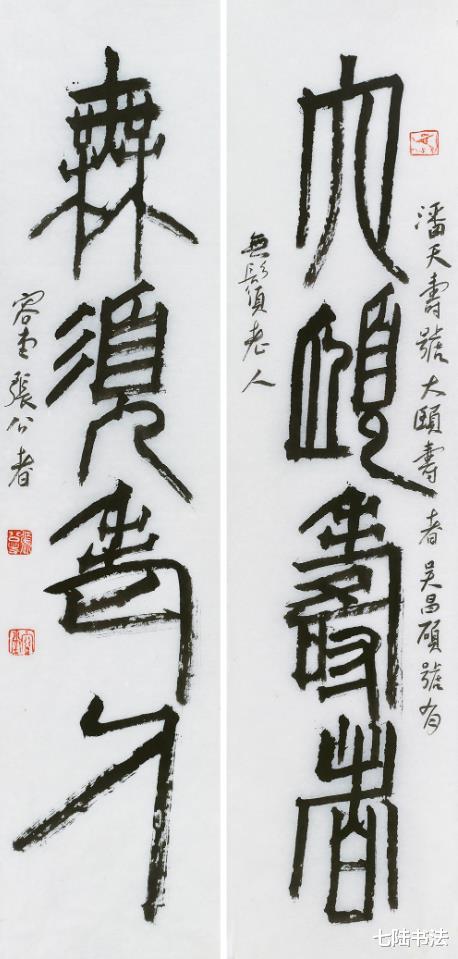 大頤壽者
潘天壽號大頤壽者吴昌碩號有
無鬚老人
無須老人
容堂張公者
七陆书法